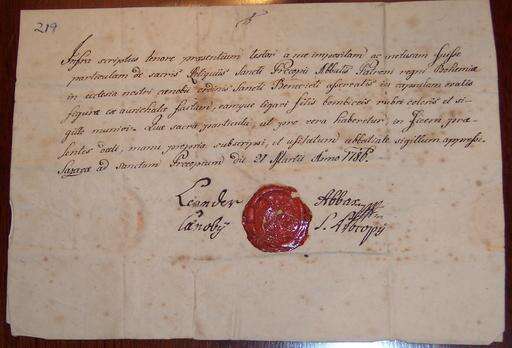 219
Infra scriptus tenore præsentium testor a me immissam ac inclusam fuisse
particulam de sacris Reliquiis Sancti Procopii Abbatis Patroni regni Bohemiæ
in ecclesia nostri cænobii ordinis Sancti Benedicti asservatis in capsulam ovalis
figuræ ex aurichalco factam, eamque ligavi filis bombiceis rubri coloris et si-
gillo munivi. Quæ sacra particula, ut pro vera haberetur, in fidem præ-
sentes dedi, manu propria subscripsi, et usitatum abbatiale sigillum appressi.
Sazavæ ad Sanctum Procopium die 21 Martii Anno 1786.
Leander Abbas
S. Procopii